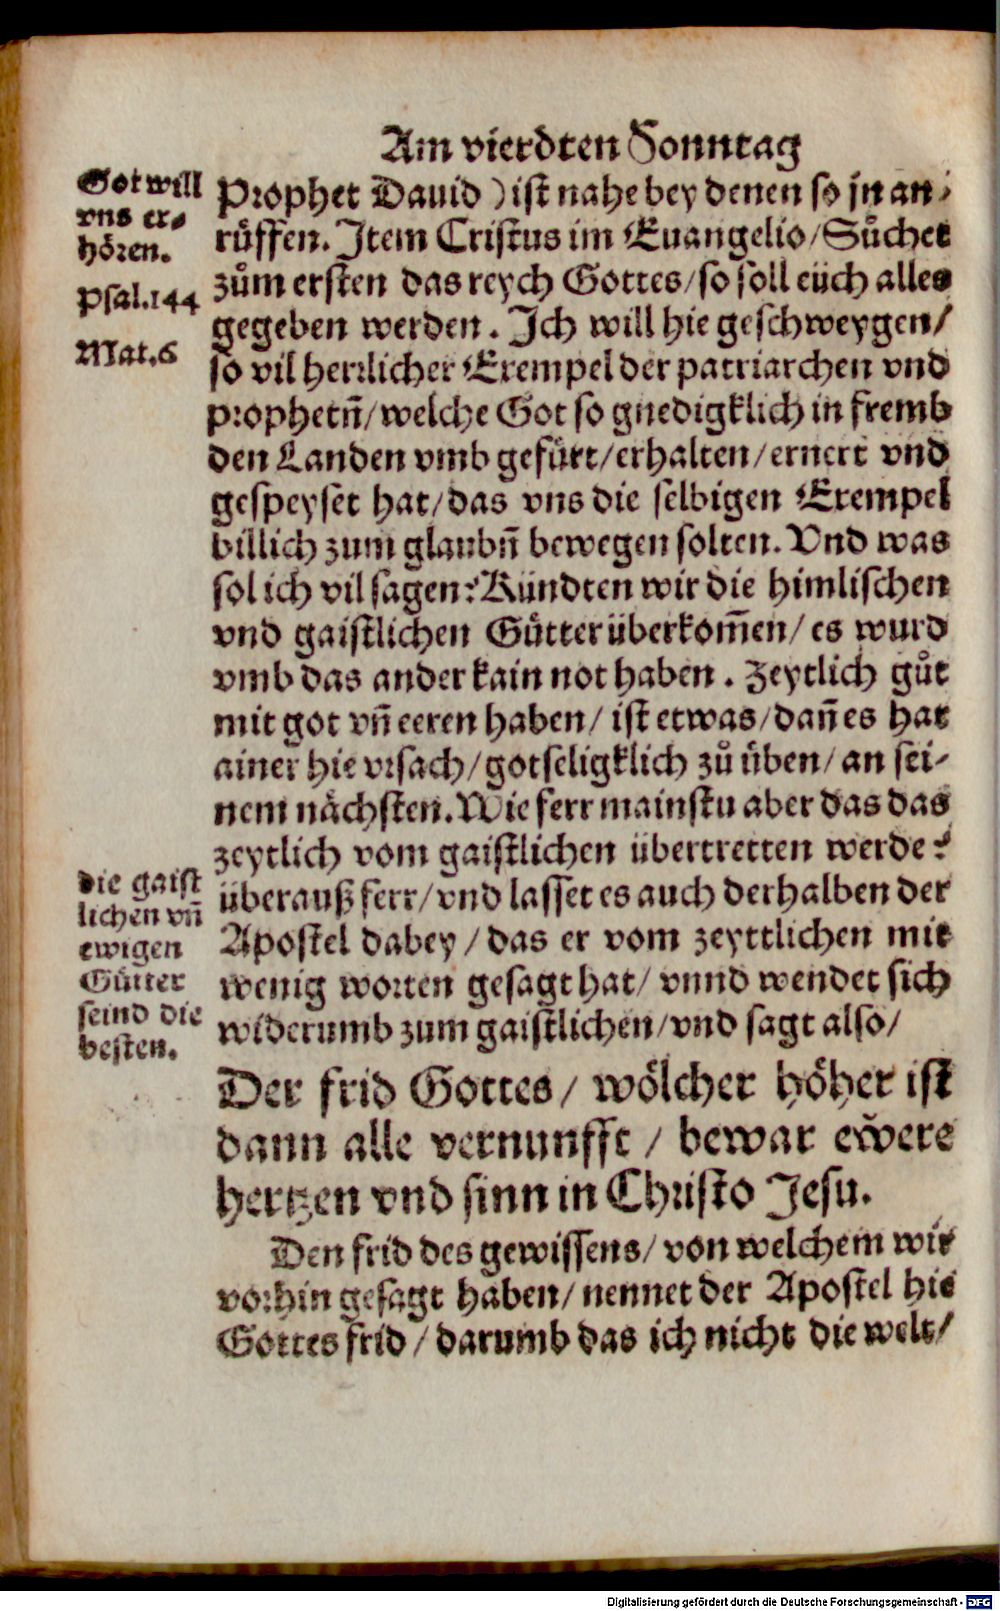 Am vierdten Sonntag
Got will
vns er⸗
hören.
Psal.144
Mat.6
Prophet Dauid ) ist nahe bey denen so jn an⸗
rüffen. Item Cristus im Euangelio/Sůchet
zům ersten das reych Gottes/so soll eüch alles
gegeben werden. Ich will hie geschweygen/
so vil herrlicher Exempel der patriarchen vnd
prophetn̄/welche Got so gnedigklich in fremb
den Landen vmb gefürt/erhalten/ernert vnd
gespeyset hat/das vns die selbigen Exempel
billich zum glaubn̄ bewegen solten. Vnd was
sol ich vil sagen? Kündten wir die himlischen
vnd gaistlichen Gütter überkom̄en/es wurd
vmb das ander kain not haben. Zeytlich gůt
mit got vn̄ eeren haben/ist etwas/dan̄ es hat
ainer hie vrsach/gotseligklich zů üben/an sei⸗
nem nächsten. Wie ferr mainstu aber das das
zeytlich vom gaistlichen übertretten werde?
überauß ferr/vnd lasset es auch derhalben der
Apostel dabey/das er vom zeyttlichen mit
wenig worten gesagt hat/vnnd wendet sich
widerumb zum gaistlichen/vnd sagt also/
die gaist
lichen vn̄
ewigen
Gütter
seind die
besten.
Der frid Gottes/wölcher höher ist
dann alle vernunfft/bewar ewere
hertzen vnd sinn in Christo Jesu.
Den frid des gewissens/von welchem wir
vorhin gesagt haben/nennet der Apostel hie
Gottes frid/darumb das ich nicht die welt/
Digitalisierung gefördert durch die Deutsche Forschungsgemeinschaft - DFG